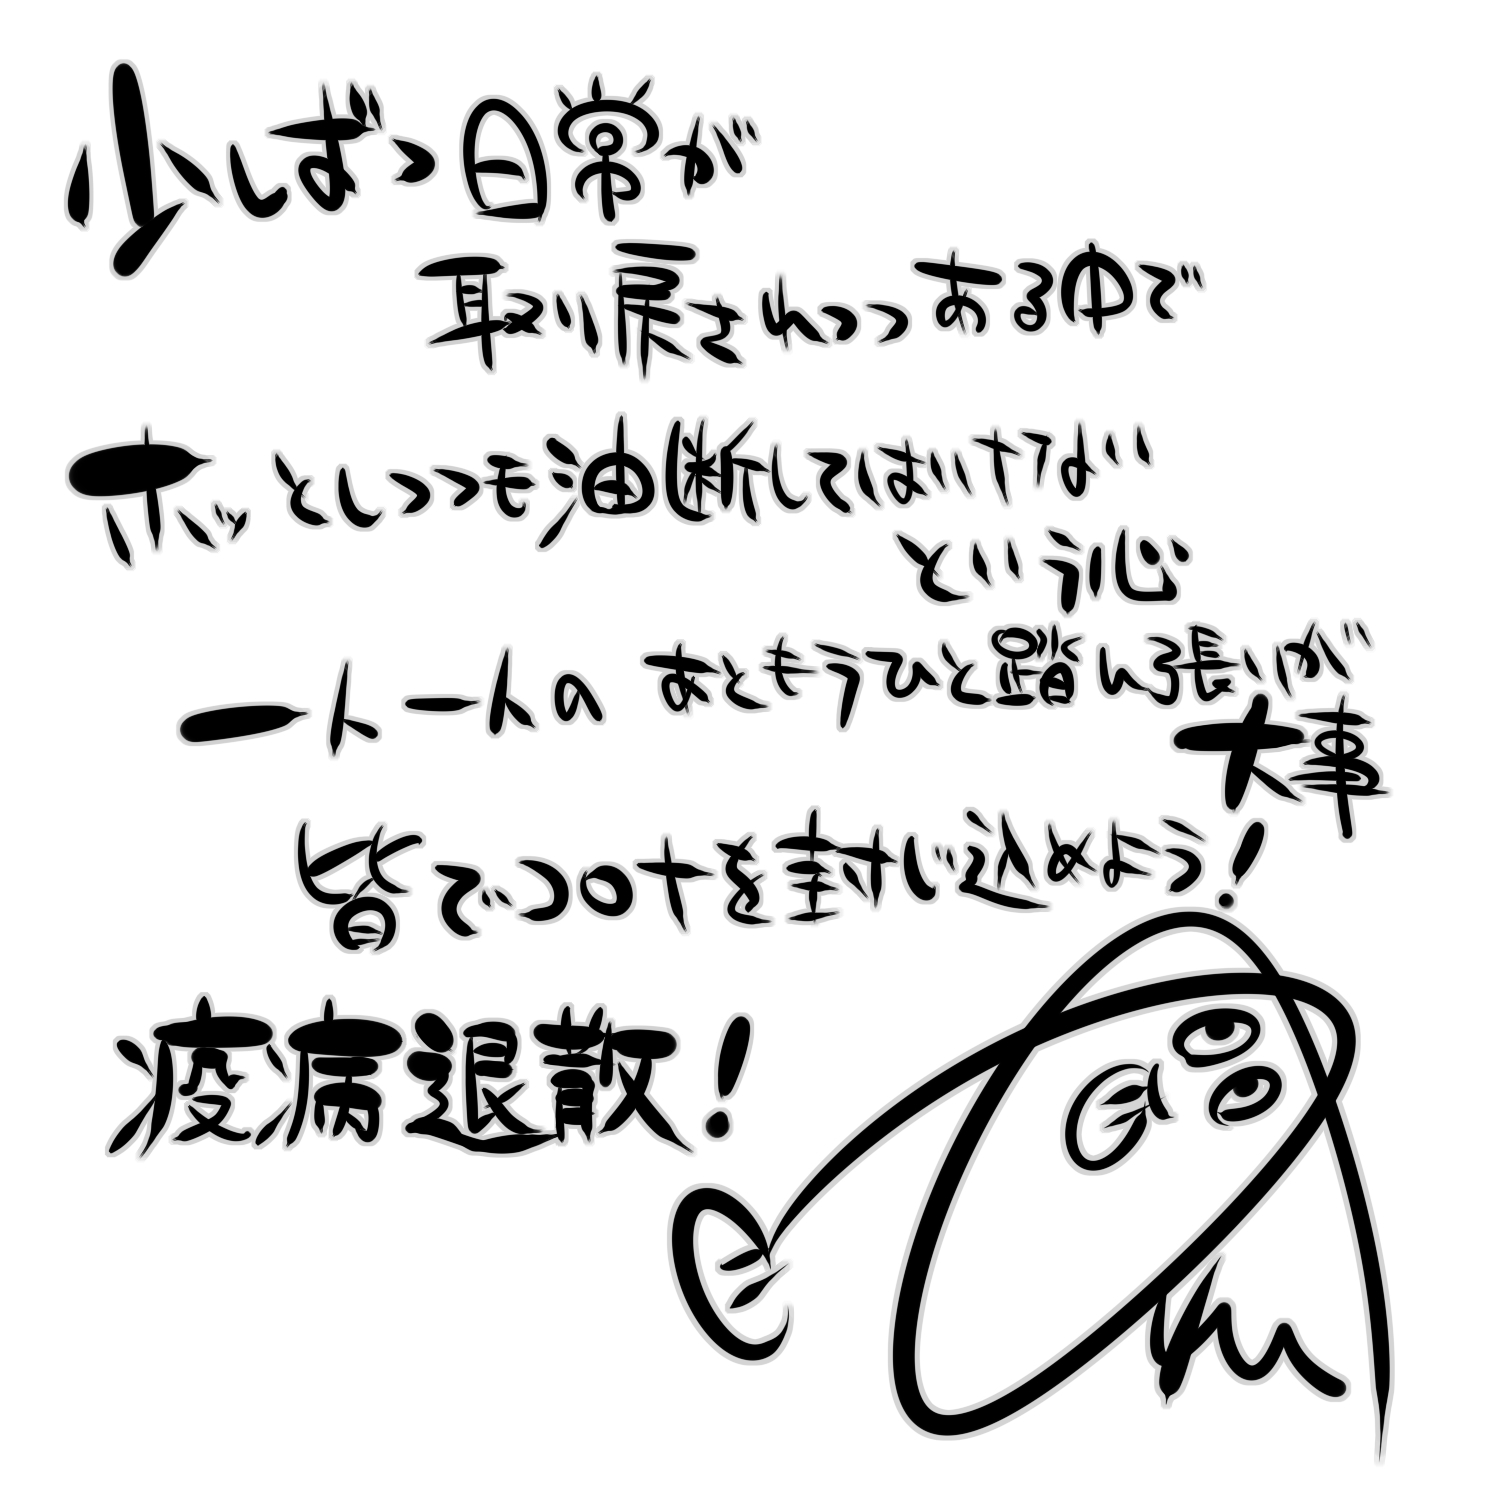 少しずつ日常が
取り戻されつつある中で
ホッとしつつも油断してはいけない
という心
一人一人の あともうひと踏ん張りが
大事
皆でコロナを封じ込めよう!
疫病退散!